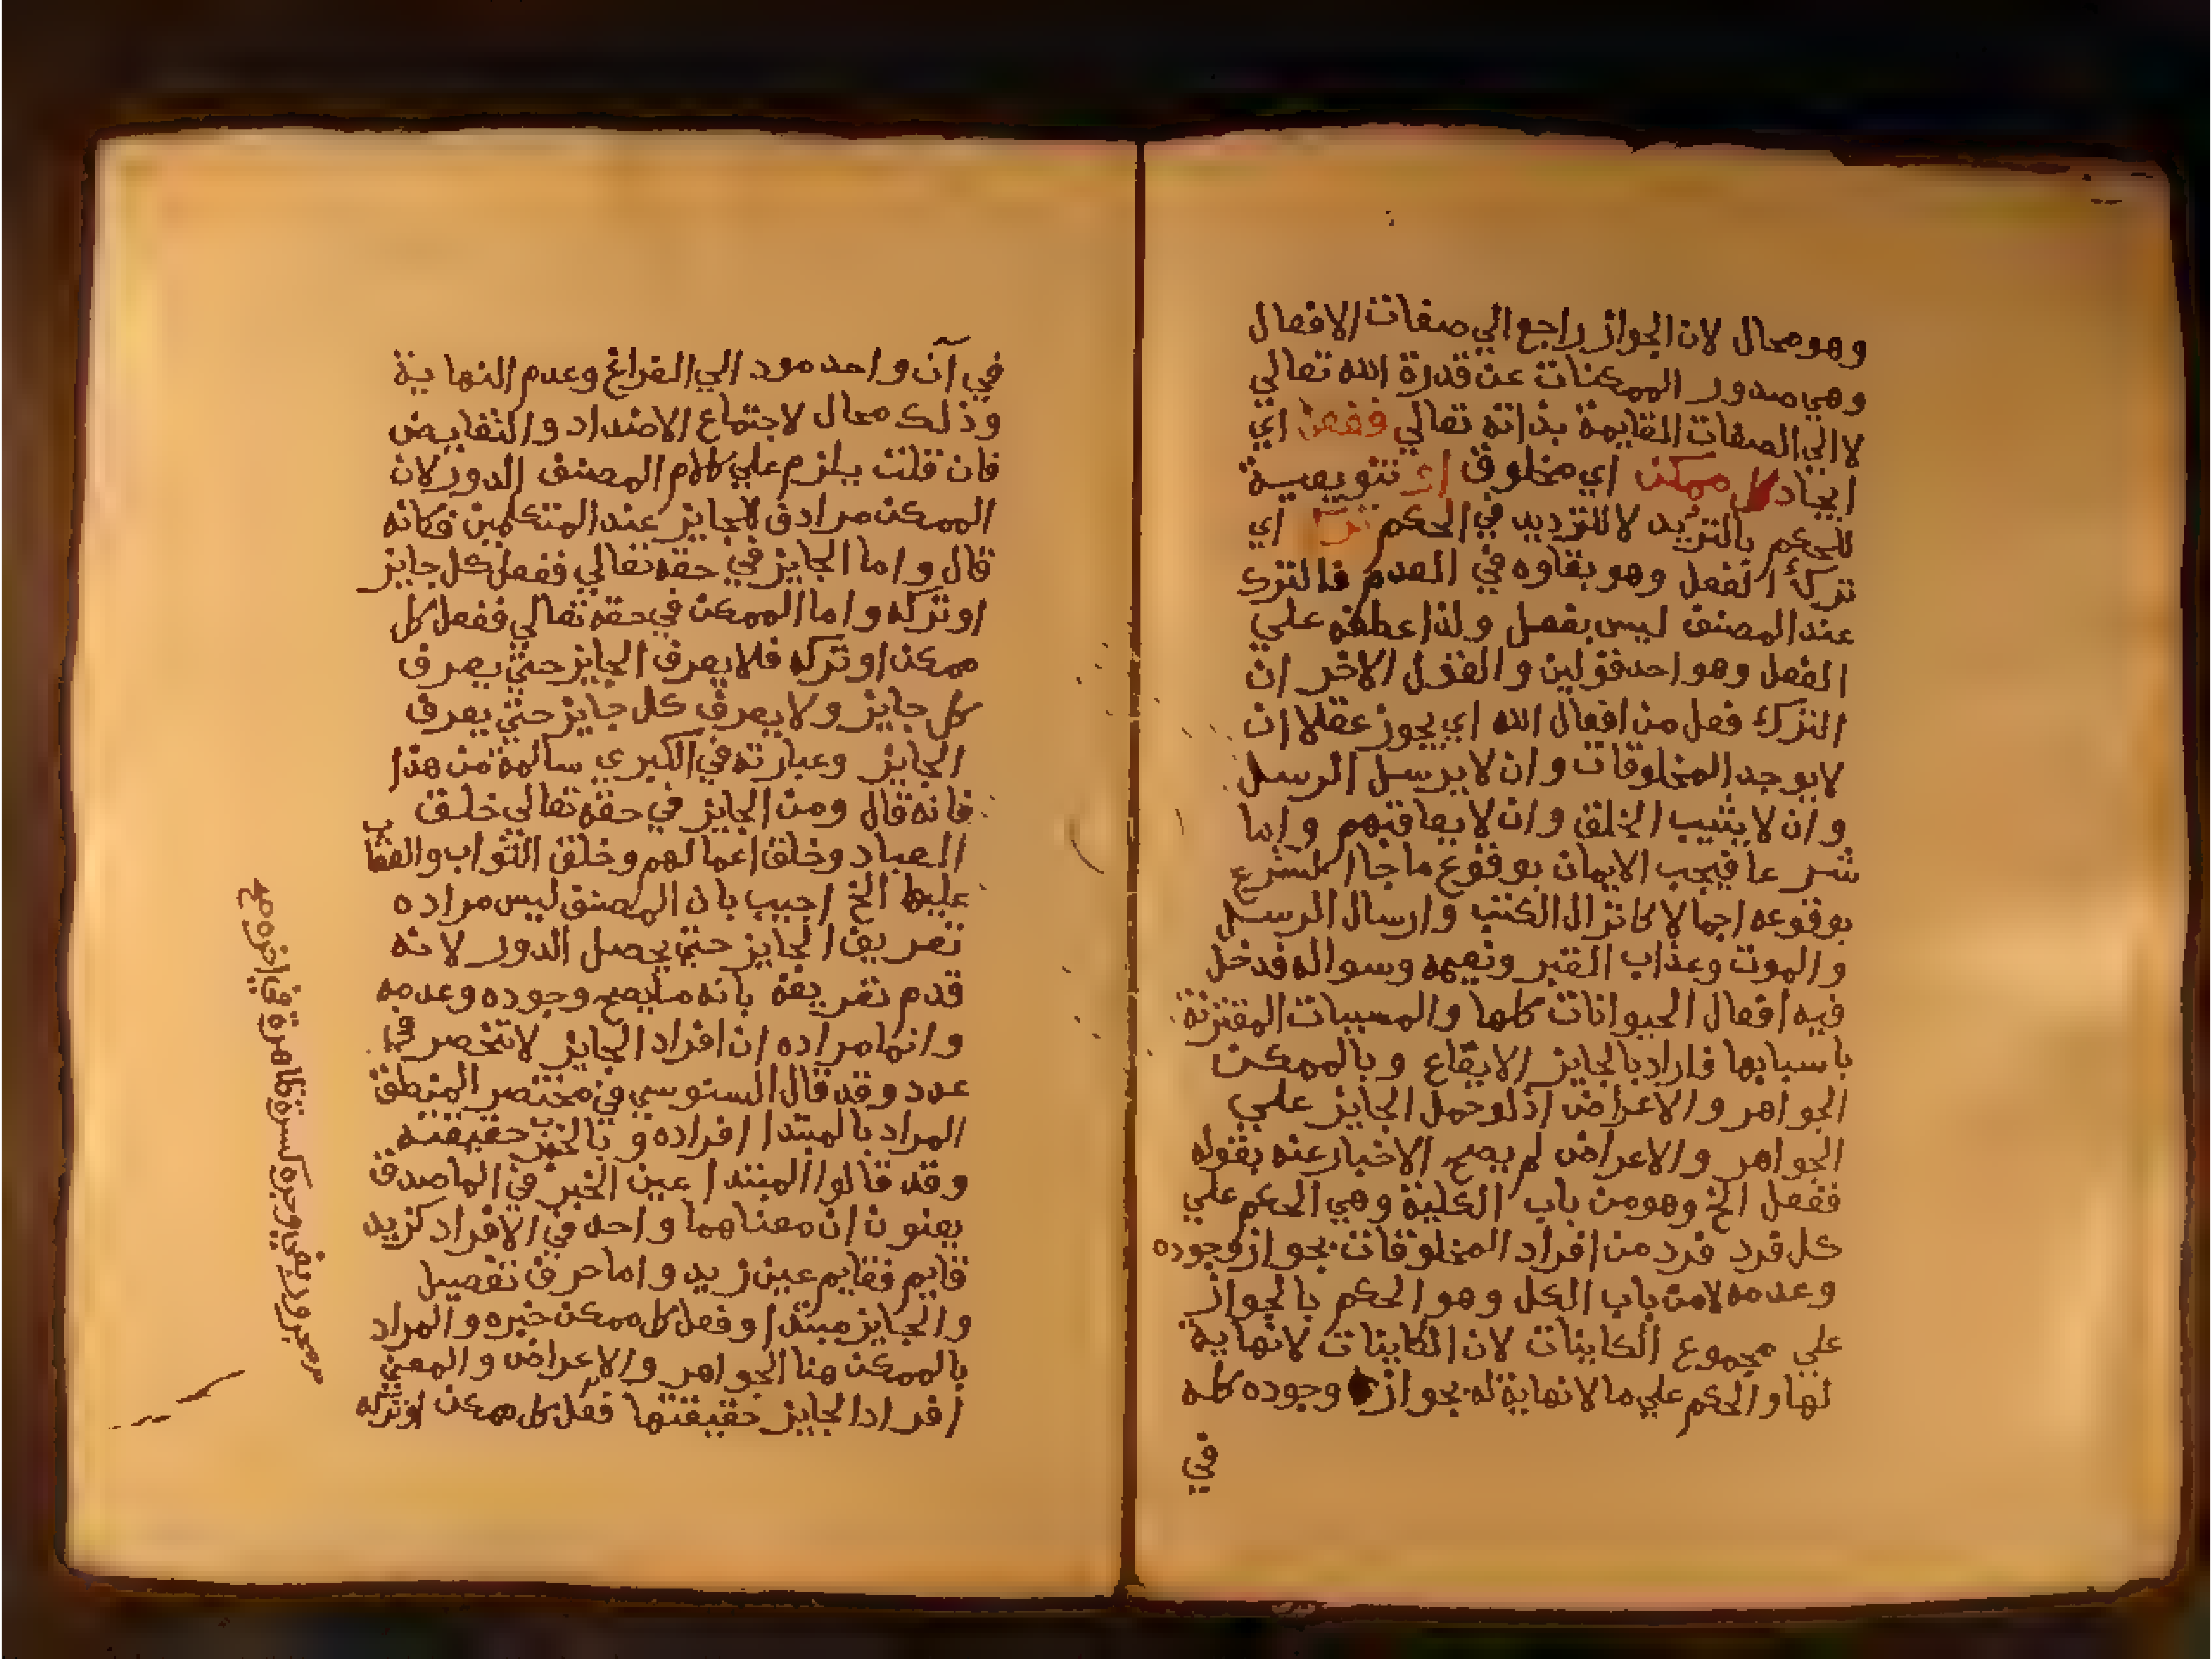 وهو محال لان الجواز راجع الي صفات الافعال
وهي صدور الممكنات عن قدرة الله تعالي
لا الي الصفات القايمة بذاته تعالي ففعل اي
ايجاد كل ممكن اي مخلوق او تنويعية
للحكم بالترديد لا للترديد في الحكم ترك اي
ترك الفعل وهو بقاوه في العدم فالترك
عند المصنف ليس بفعل ولذا عطفه علي
الفعل وهو احد قولين والقول الاخر ان
الترك فعل من افعال الله اي يجوز عقلا ان
لا يوجد المخلوقات وان لا يرسل الرسل
وان لا يثيب الخلق وان لا يعاقبهم واما
شرعا فيجب الايمان بوقوع ما جا الشرع
بوقوعه اجمالا كانزال الكتب وارسال الرسل
والموت وعذاب القبر ونعيمه وسواله فدخل
فيه افعال الحيوانات كلها والمسببات المقترنة
باسبابها فاراد بالجايز الايقاع وبالممكن
الجواهر والاعراض اذ لو حمل الجايز علي
الجواهر والاعراض لم يصح الاخبار عنه بقوله
ففعل الخ وهو من باب الكلية وهي الحكم علي
كل فرد فرد من افراد المخلوقات بجواز وجوده
وعدمه لا من باب الكل وهو الحكم بالجواز
علي مجموع الكاينات لان الكاينات لا نهاية
لها والحكم علي ما لا نهاية له بجواز وجوده كله
في
في آن واحد مود الي الفراغ وعدم النهاية
وذلك محال لاجتماع الاضداد والنقايض
فان قلت يلزم علي كلام المصنف الدور لان
الممكن مرادف للجايز عند المتكلمين فكانه
قال واما الجايز في حقه تعالي ففعل كل جايز
او تركه واما الممكن في حقه تعالي ففعل كل
ممكن او تركه فلا يعرف الجايز حتي يعرف
كل جايز ولا يعرف كل جايز حتي يعرف
الجايز وعبارته في الكبري سالمة من هذا
فانه قال ومن الجايز في حقه تعالي خلق
العباد وخلق اعمالهم وخلق الثواب والعقاب
عليها الخ اجيب بان المصنف ليس مراده
تعريف الجايز حتي يحصل الدور لانه
قدم تعريفه بانه ما يصح وجوده وعدمه
وانما مراده ان افراد الجايز لا تنحصر في
عدد وقد قال السنوسي في مختصر المنطق
المراد بالمبتدا افراده وبالخبر حقيقته
وقد قالوا المبتدا عين الخبر في الماصدق
يعنون ان معناهما واحد في الافراد كزيد
قايم فقايم عين زيد واما حرف تفصيل
والجايز مبتدا وفعل كل ممكن خبره والمراد
بالممكن هنا الجواهر والاعراض والمعني
افراد الجايز حقيقتها فعل كل ممكن او تركه
مجرور بفي وجره كسرة ظاهرة في اخره صح